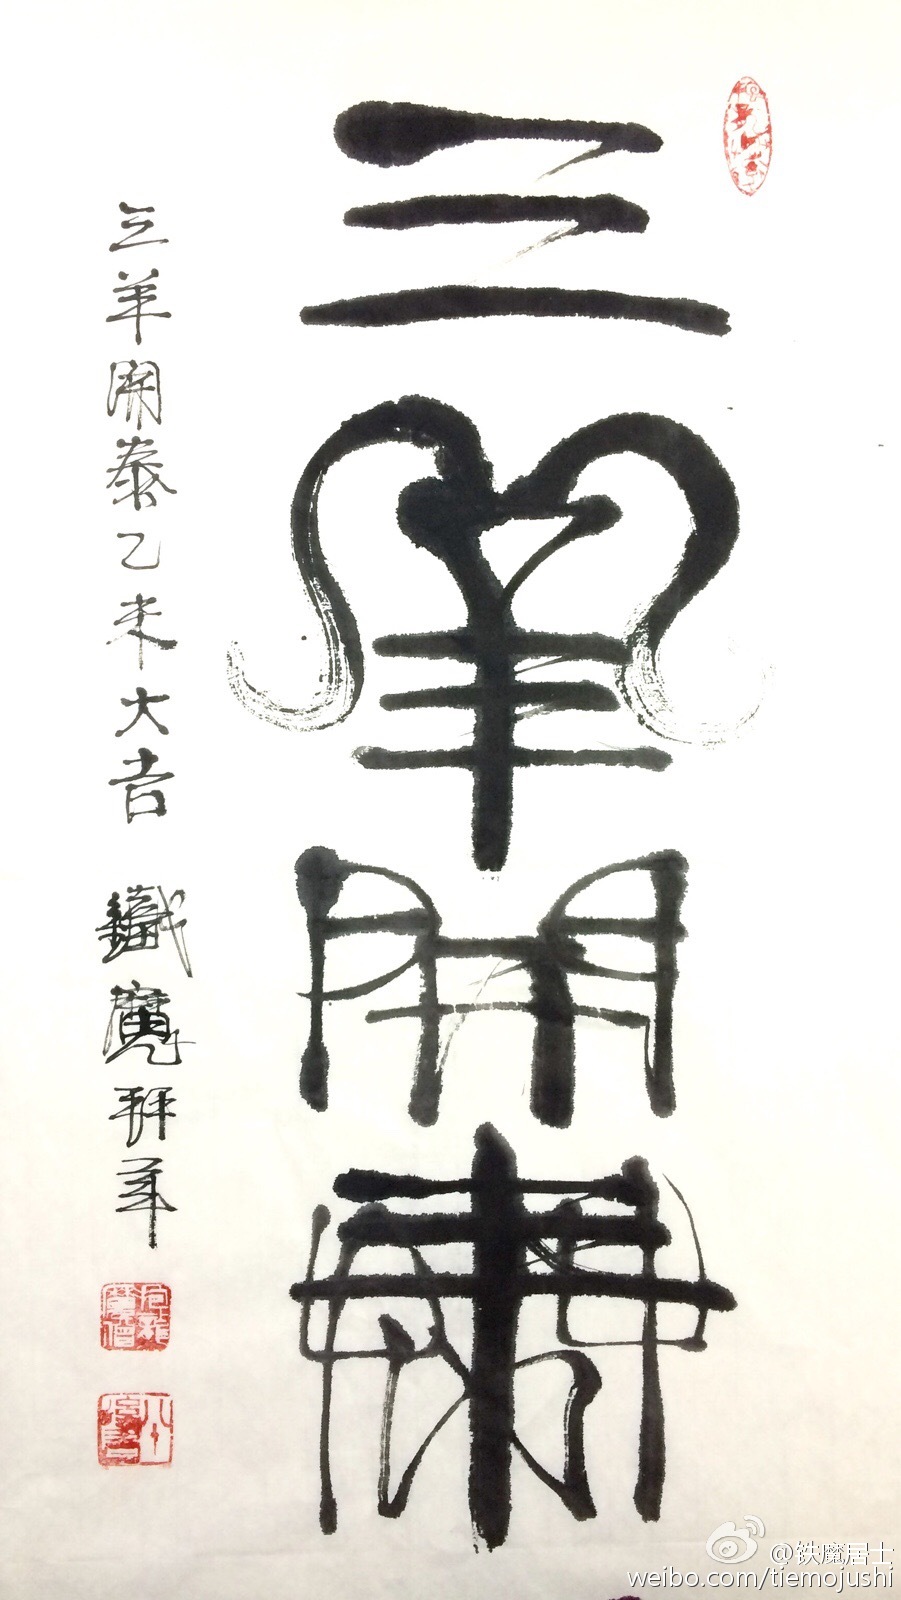 三羊開泰
三羊開泰乙未大吉 鐵魔拜年
@铁魔居士
weibo.com/tiemojushi